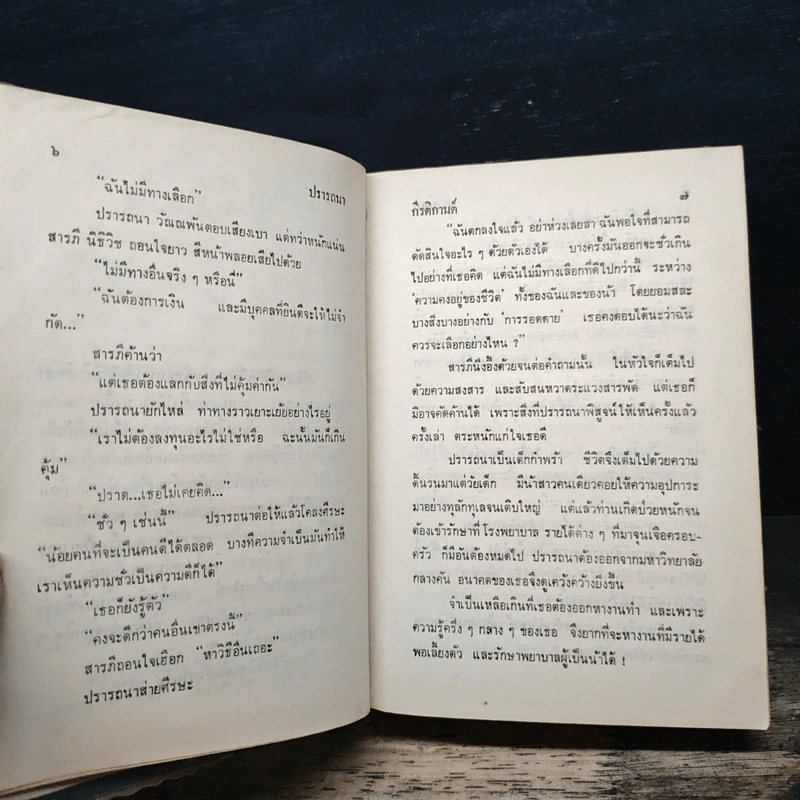 ๖
ปรารถนา
“ฉันไม่มีทางเลือก”
ปรารถนา วัณณพันตอบเสียงเบา แต่ทว่าหนักแน่น
สารภี นิธิวิช ถอนใจยาว สีหน้าพลอยเสียไปด้วย
“ไม่มีทางอื่นจริง ๆ หรือนี่”
“ฉันต้องการเงิน และมีบุคคลที่ยินดีจะให้ไม่จำ
กัด...”
สารภีค้านว่า
“แต่เธอต้องแลกกับสิ่งที่ไม่คุ้มค่ากัน”
ปรารถนายักไหล่ ท่าทางราวเยาะเย้ยอย่างไรอยู่
“เราไม่ต้องลงทุนอะไรไม่ใช่หรือ ฉะนั้นมันก็เกิน
คุ้ม”
“ปราด...เธอไม่เคยคิด...”
“ชั่ว ๆ เช่นนี้” ปรารถนาต่อให้แล้วโคลงศีรษะ
“น้อยคนที่จะเป็นคนดีได้ตลอด บางทีความจำเป็นมันทำให้
เราเห็นความชั่วเป็นความดีก็ได้”
“เธอก็ยังรู้ตัว”
“คงจะดีกว่าคนอื่นเขาตรงนี้”
สารภีถอนใจเฮือก “หาวิธีอื่นเถอะ”
ปรารถนาส่ายศีรษะ
กีรติกานต์
๗
“ฉันตกลงใจแล้ว อย่าห่วงเลยสา ฉันพอใจที่สามารถ
ตัดสินใจอะไร ๆ ด้วยตัวเองได้ บางครั้งมันออกจะชั่วเกิน
ไปอย่างที่เธอคิด แต่ฉันไม่มีทางเลือกที่ดีไปกว่านี้ ระหว่าง
‘ความคงอยู่ของชีวิต’ ทั้งของฉันและของน้า โดยยอมสละ
บางสิ่งบางอย่างกับ ‘การรอดตาย’ เธอคงตอบได้นะว่าฉัน
ควรจะเลือกอย่างไหน ?”
สารภีนิ่งอึ้งด้วยจนต่อคำถามนั้น ในหัวใจก็เต็มไป
ด้วยความสงสาร และสับสนหวาดระแวงสารพัด แต่เธอก็
มิอาจคัดค้านได้ เพราะสิ่งที่ปรารถนาพิสูจน์ให้เห็นครั้งแล้ว
ครั้งเล่า ตระหนักแก่ใจเธอดี
ปรารถนาเป็นเด็กกำพร้า ชีวิตจึงเต็มไปด้วยความ
ดิ้นรนมาแต่วัยเด็ก มีน้าสาวคนเดียวคอยให้ความอุปการะ
มาอย่างทุลักทุเลจนเติบใหญ่ แต่แล้วท่านเกิดป่วยหนักจน
ต้องเข้ารักษาที่โรงพยาบาล รายได้ต่าง ๆ ที่มาจุนเจือครอบ-
ครัว ก็มีอันต้องหมดไป ปรารถนาต้องออกจากมหาวิทยาลัย
กลางคัน อนาคตของเธอจึงดูเคว้งคว้างยิ่งขึ้น
จำเป็นเหลือเกินที่เธอต้องออกหางานทำ และเพราะ
ความรู้ครึ่ง ๆ กลาง ๆ ของเธอ จึงยากที่จะหางานที่มีรายได้
พอเลี้ยงตัว และรักษาพยาบาลผู้เป็นน้าได้ !